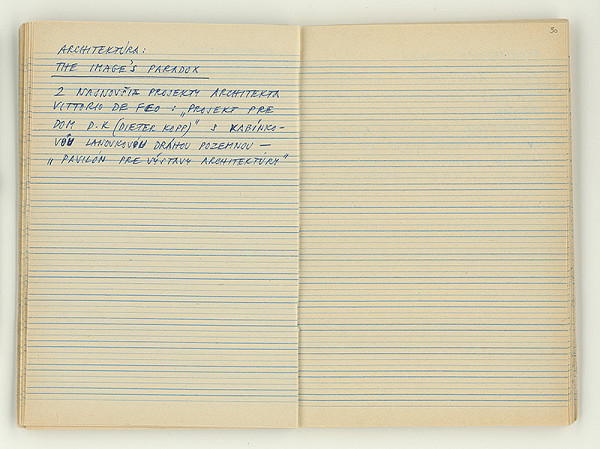 ARCHITEKTÚRA:
THE IMAGE'S PARADOX
2 NAJNOVŠIE PROJEKTY ARCHITEKTA
VITTORIO DE FEO : „PROJEKT PRE
DOM D.K (DIETER KOPP)" S KABÍNKO-
VOU LANOVKOVOU DRÁHOU POZEMNOU —
„PAVILÓN PRE VÝSTAVY ARCHITEKTÚRY"
30